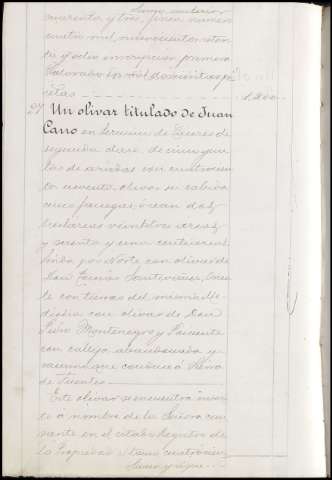 cuarenta y tres, finca numero
cuatro mil, novecientos ochen
ta y ocho inscripcion primera
Valorado en mil doscientas pe
setas
27 Un olivar titulado de Juan
Cano en termino de Linares de
segunda clase, de cinco
de con cuatrocien
tos noventa olivos su cabida
cinco fanegas, ó sean dos
hectáreas veintitres areas
y sesenta y una centiareas
linda por Norte con olivos de
Don Tomás
te con tierras del mismo Me
diodia con olivar de Don
Pedro Montenegro y Poniente
con calleja abandonada y
camino que conduce á
de Fuentes
Este olivar se encuentra inscri
to á nombre de la Señora
en el citado Registro de
la Propiedad al tomo cuatrocien